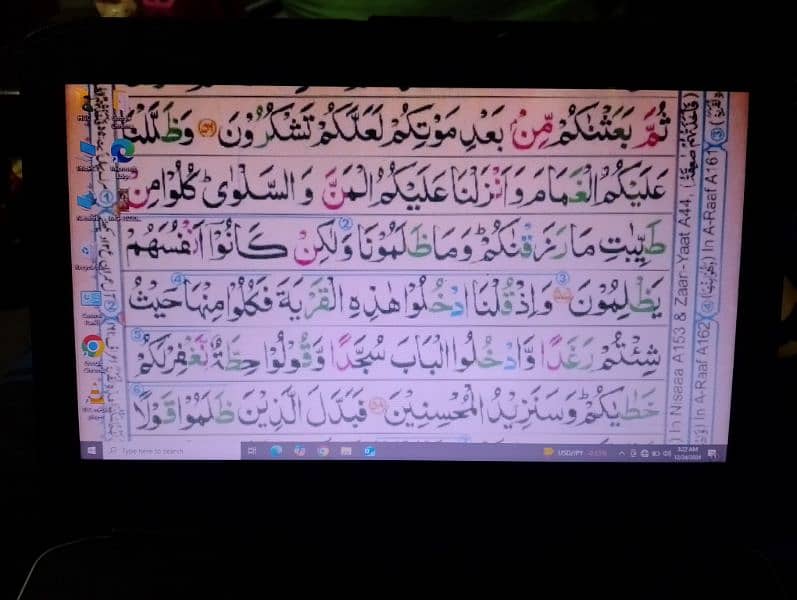 ثُمَّ بَعَثْنٰكُمْ مِّنْۢ بَعْدِ مَوْتِكُمْ لَعَلَّكُمْ تَشْكُرُوْنَ ۵۶ وَظَلَّلْنَا
عَلَيْكُمُ الْغَمَامَ وَاَنْزَلْنَا عَلَيْكُمُ الْمَنَّ وَالسَّلْوٰىؕ كُلُوْا مِنْ
طَيِّبٰتِ مَا رَزَقْنٰكُمْؕ وَمَا ظَلَمُوْنَا وَلٰكِنْ كَانُوْۤا اَنْفُسَهُمْ
يَظْلِمُوْنَ ۵۷ وَاِذْ قُلْنَا ادْخُلُوْا هٰذِهِ الْقَرْيَةَ فَكُلُوْا مِنْهَا حَيْثُ
شِئْتُمْ رَغَدًا وَّادْخُلُوا الْبَابَ سُجَّدًا وَّقُوْلُوْا حِطَّةٌ نَّغْفِرْ لَكُمْ
خَطٰيٰكُمْؕ وَسَنَزِيْدُ الْمُحْسِنِيْنَ ۵۸ فَبَدَّلَ الَّذِيْنَ ظَلَمُوْا قَوْلًا
) In Nisaaa A153 & Zaar-Yaat A44,
) In A-Raaf A162
) In A-Raaf A161 ③
Type here to search
USD/JPY -0.15%
3:22 AM